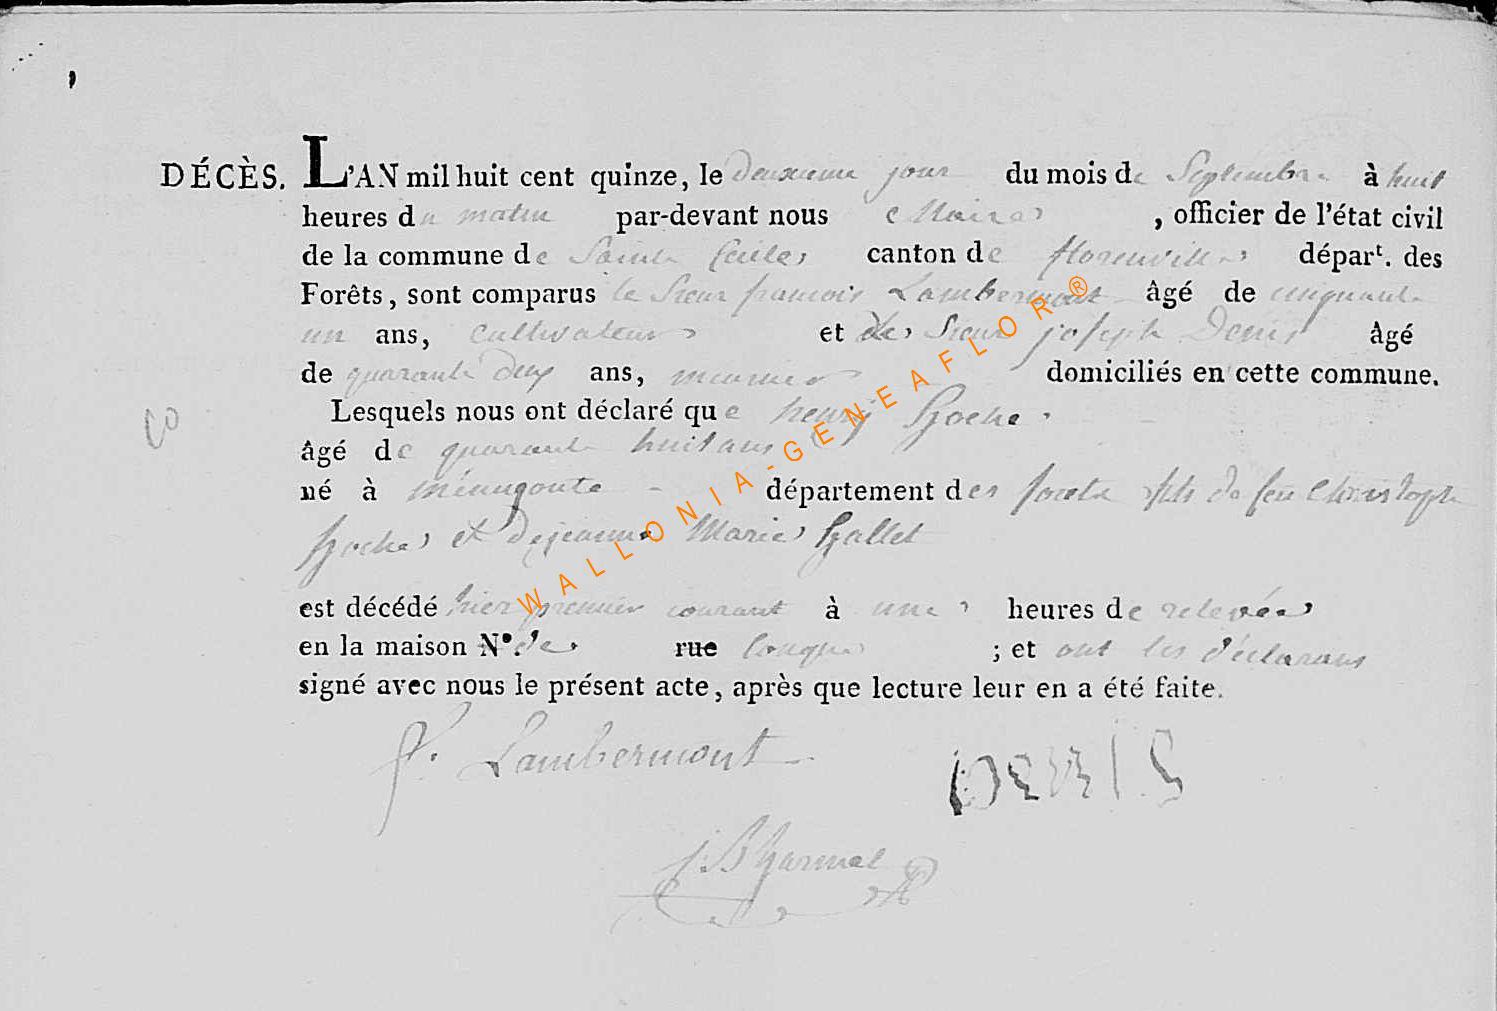 DÉCÈS. L'AN mil huit cent quinze, le deuxieme jour du mois de Septembre à huit
heures du matin par-devant nous Maire, officier de l'état civil
de la commune de Sainte Cecile, canton de florenville, dépar<sup>t</sup>. des
Forêts, sont comparus le Sieur francois Lambermont âgé de cinquante
un ans, cultivateur et le Sieur joseph Denis âgé
de quarante deux ans, meunier domiciliés en cette commune.
Lesquels nous ont déclaré que henry hoche
âgé de quarante huit ans
né à département des forets fils de feu Christophe
hoche et de jeanne Marie hallet
est décédé hier premier courant à une heures de relevée
en la maison N°. de rue ; et ont les déclarans
signé avec nous le présent acte, après que lecture leur en a été faite.
f. Lambermont
DENIS
WALLONIA-GENEAFLOR®